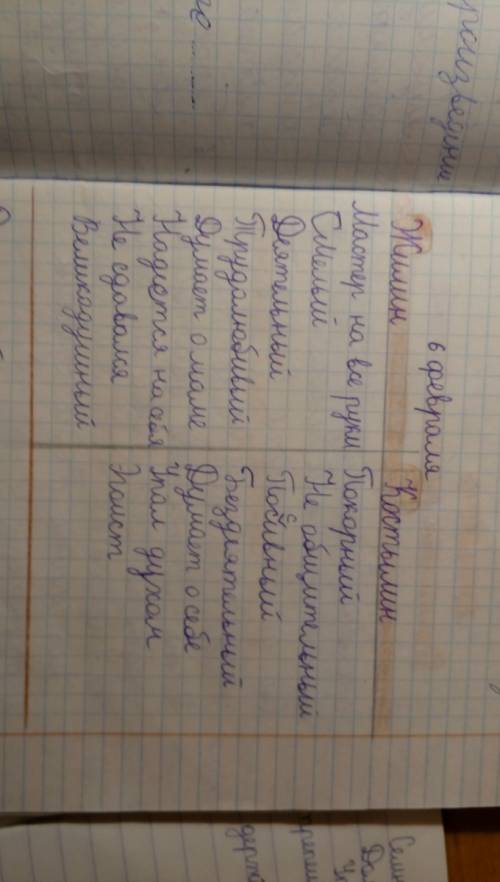 роизведени
6 февраля
Жилин Костылин
Мастер на все руки Покорный
Смелый Не общительный
Деятельный Поссивный
Трудолюбивый Бездеятельный
Думает о маме Думает о себе
Надеется на себя Упал духом
Не сдовался Эгоист
Великодушный